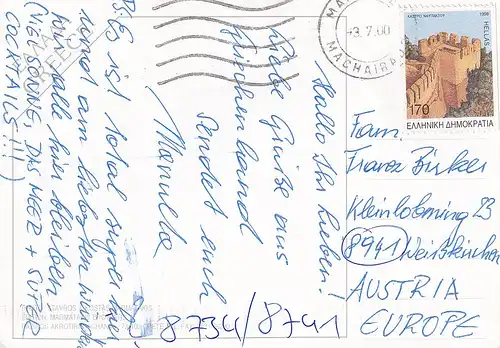 Hallo Ihr Lieben!
Liebe Grüße aus
Griechenland
Sendet euch
Manuela
P.S. Es ist total super hier
und am liebsten würden
wir alle hier bleiben.
(VIEL SONNE, DAS MEER + SUPER
COCKTAILS!!!)
-3.7.00
MACHAIRA
ΚΑΣΤΡΟ ΝΑΥΠΑΚΤΟΥ 1998
HELLAS
170
ΕΛΛΗΝΙΚΗ ΔΗΜΟΚΡΑΤΙΑ
Fam.
Franz
Kleinlobming 23
8941 Weißkirchen
AUSTRIA
EUROPE
8734/8741